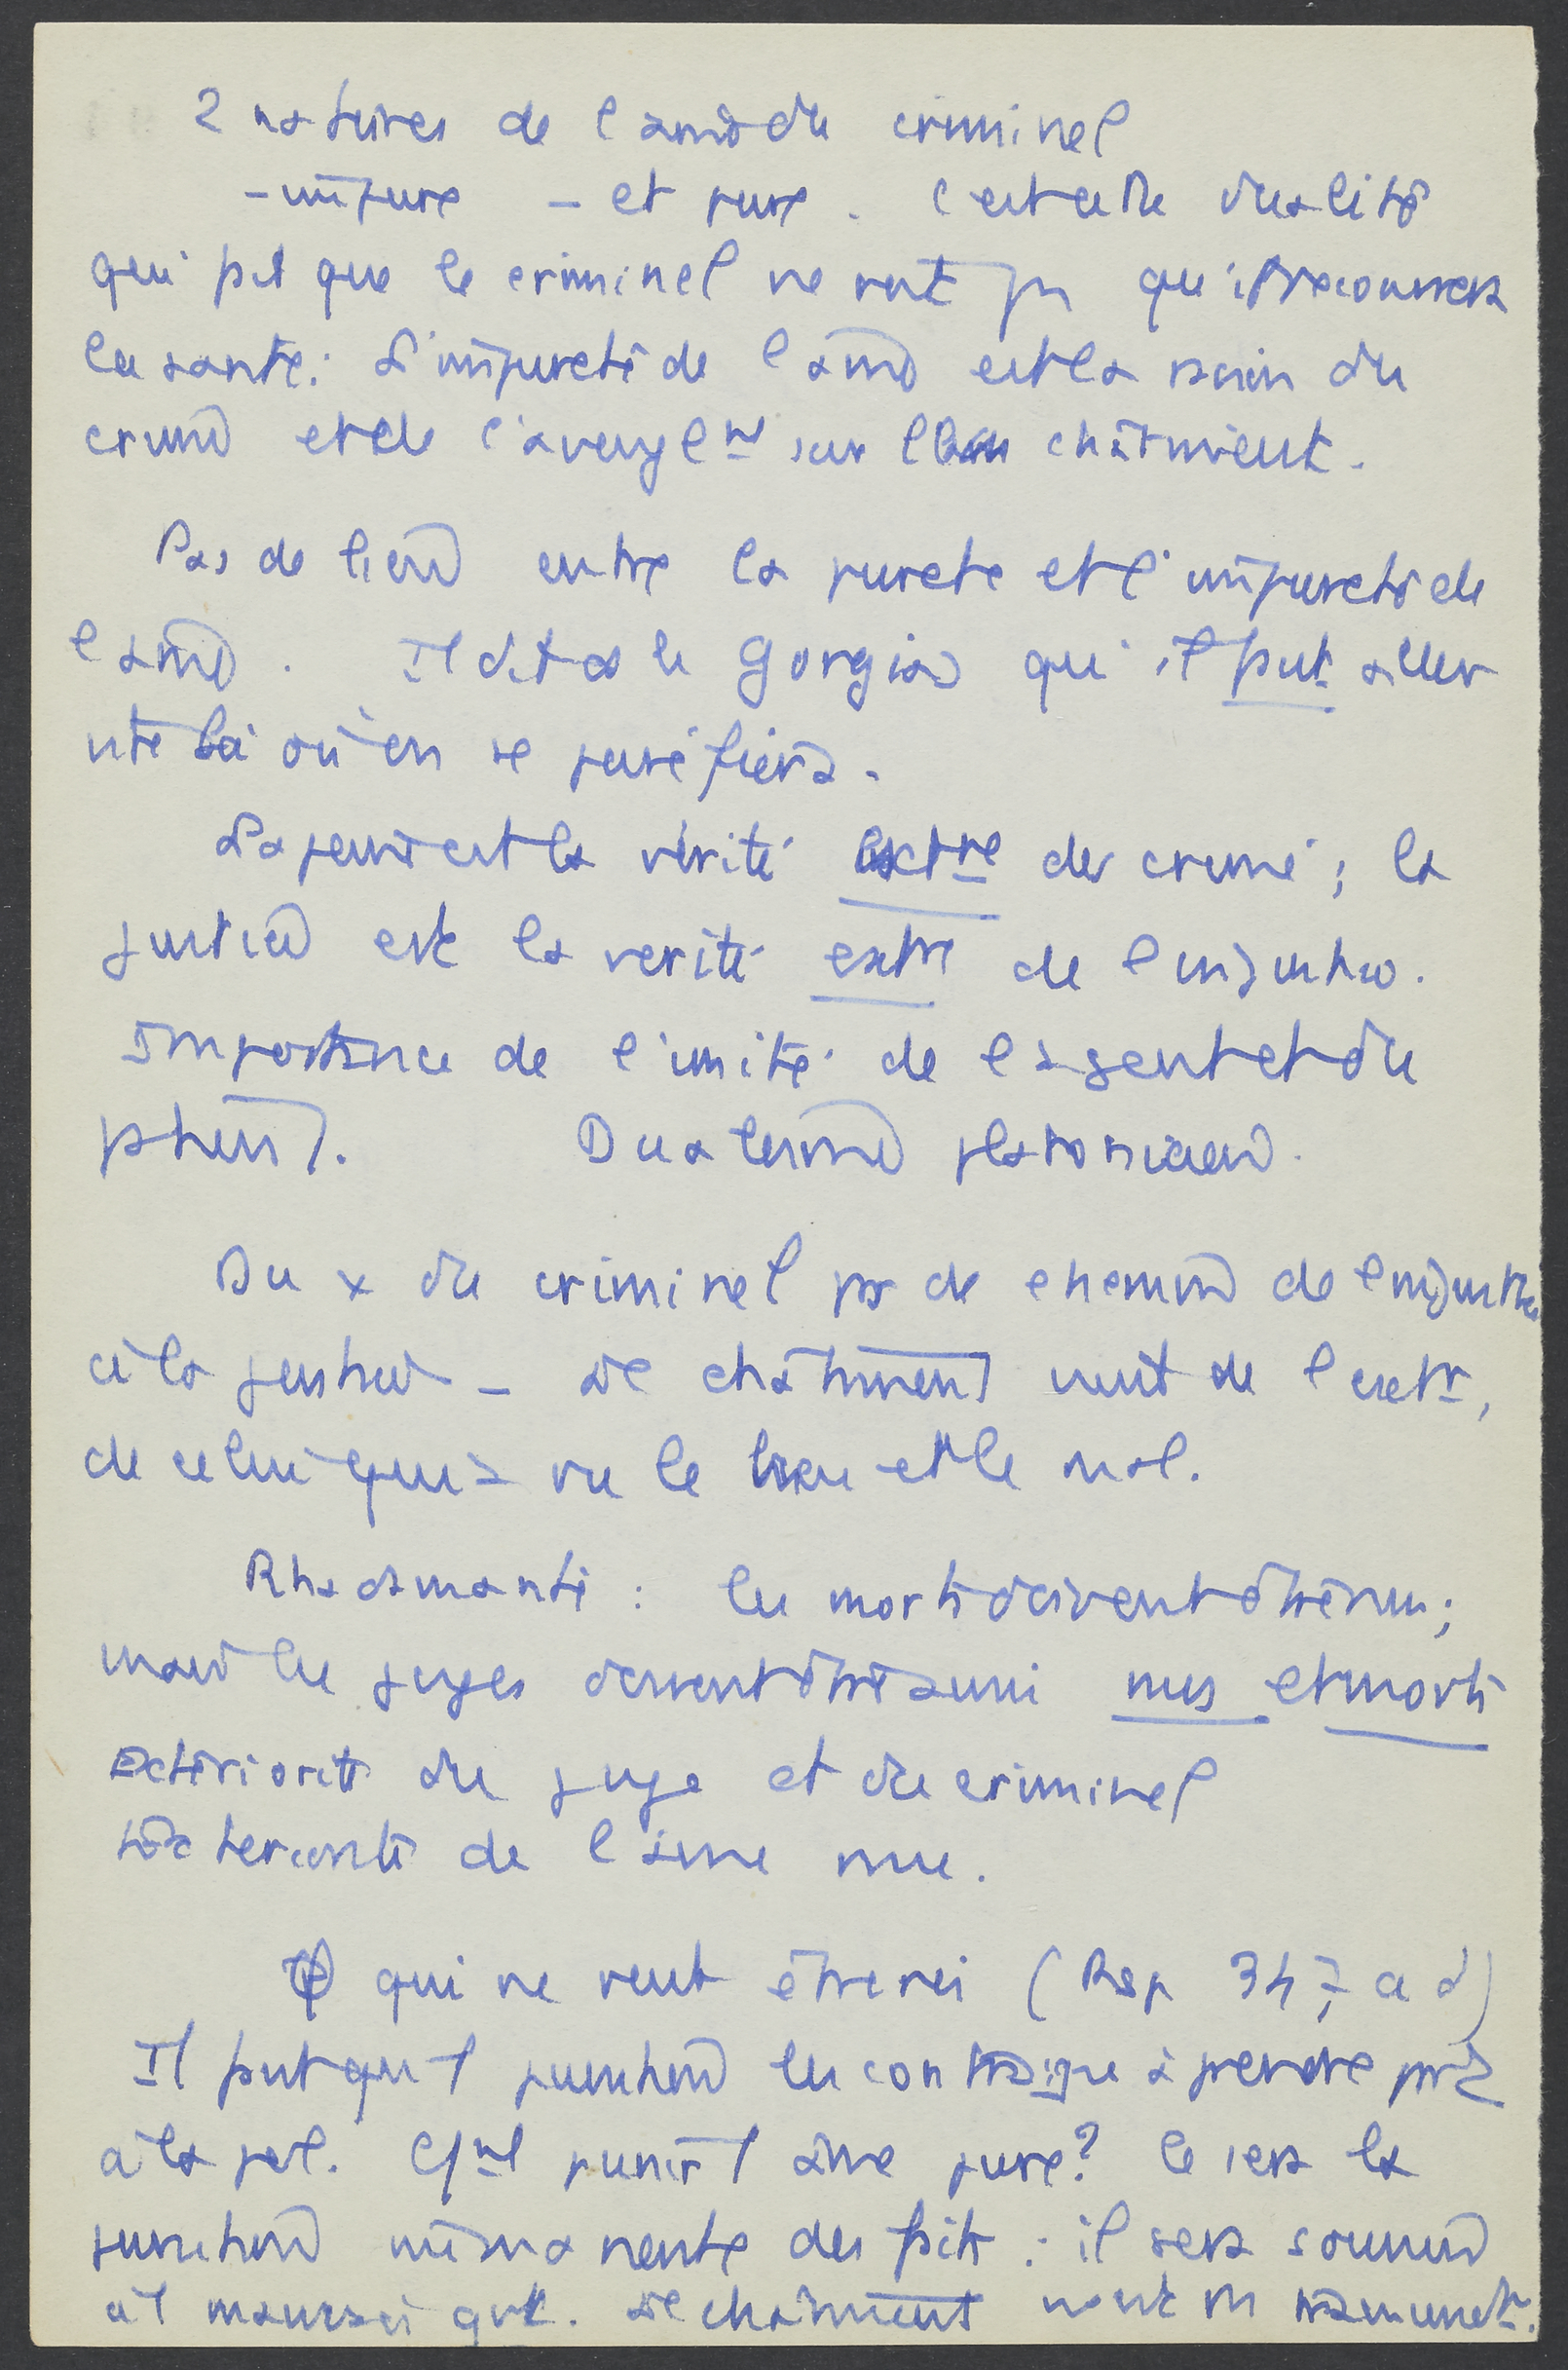 2 natures de l'âme du criminel
- impure - et pure. C'est cette dualité
qui fait que le criminel ne veut pas qu'il recouvrera
la santé. L'impureté de l'âme est la raison du
crime et de l'aveuglmt sur le châtiment.
Pas de lien entre la pureté et l'impureté de
l'âme. Il dit ds le Gorgias qu'il faut aller
vite là où on se purifiera.
La peine est la vérité extre du crime ; la
justice est la vérité extre de l'injustice.
Importance de l'unité de l'agent et du
patient. Dualisme platonicien.
Du x du criminel pas de chemin de l'injustice
à la justice - Le châtiment vient de l'extr,
de celui qui a vu le bien et le mal.
Rhadamante : les morts doivent être nus ;
mais les juges doivent être aussi nus et morts
Extériorité du juge et du criminel
de l'âme nue.
φ qui ne veut être roi (Rep 347, a d)
Il faut qu'1 punition les contraigne à prendre part
à la pol. Cment punir 1 âme pure ? Ce sera la
punition immanente des faits : il sera soumis
à 1 mauvais gvt. Le châtiment